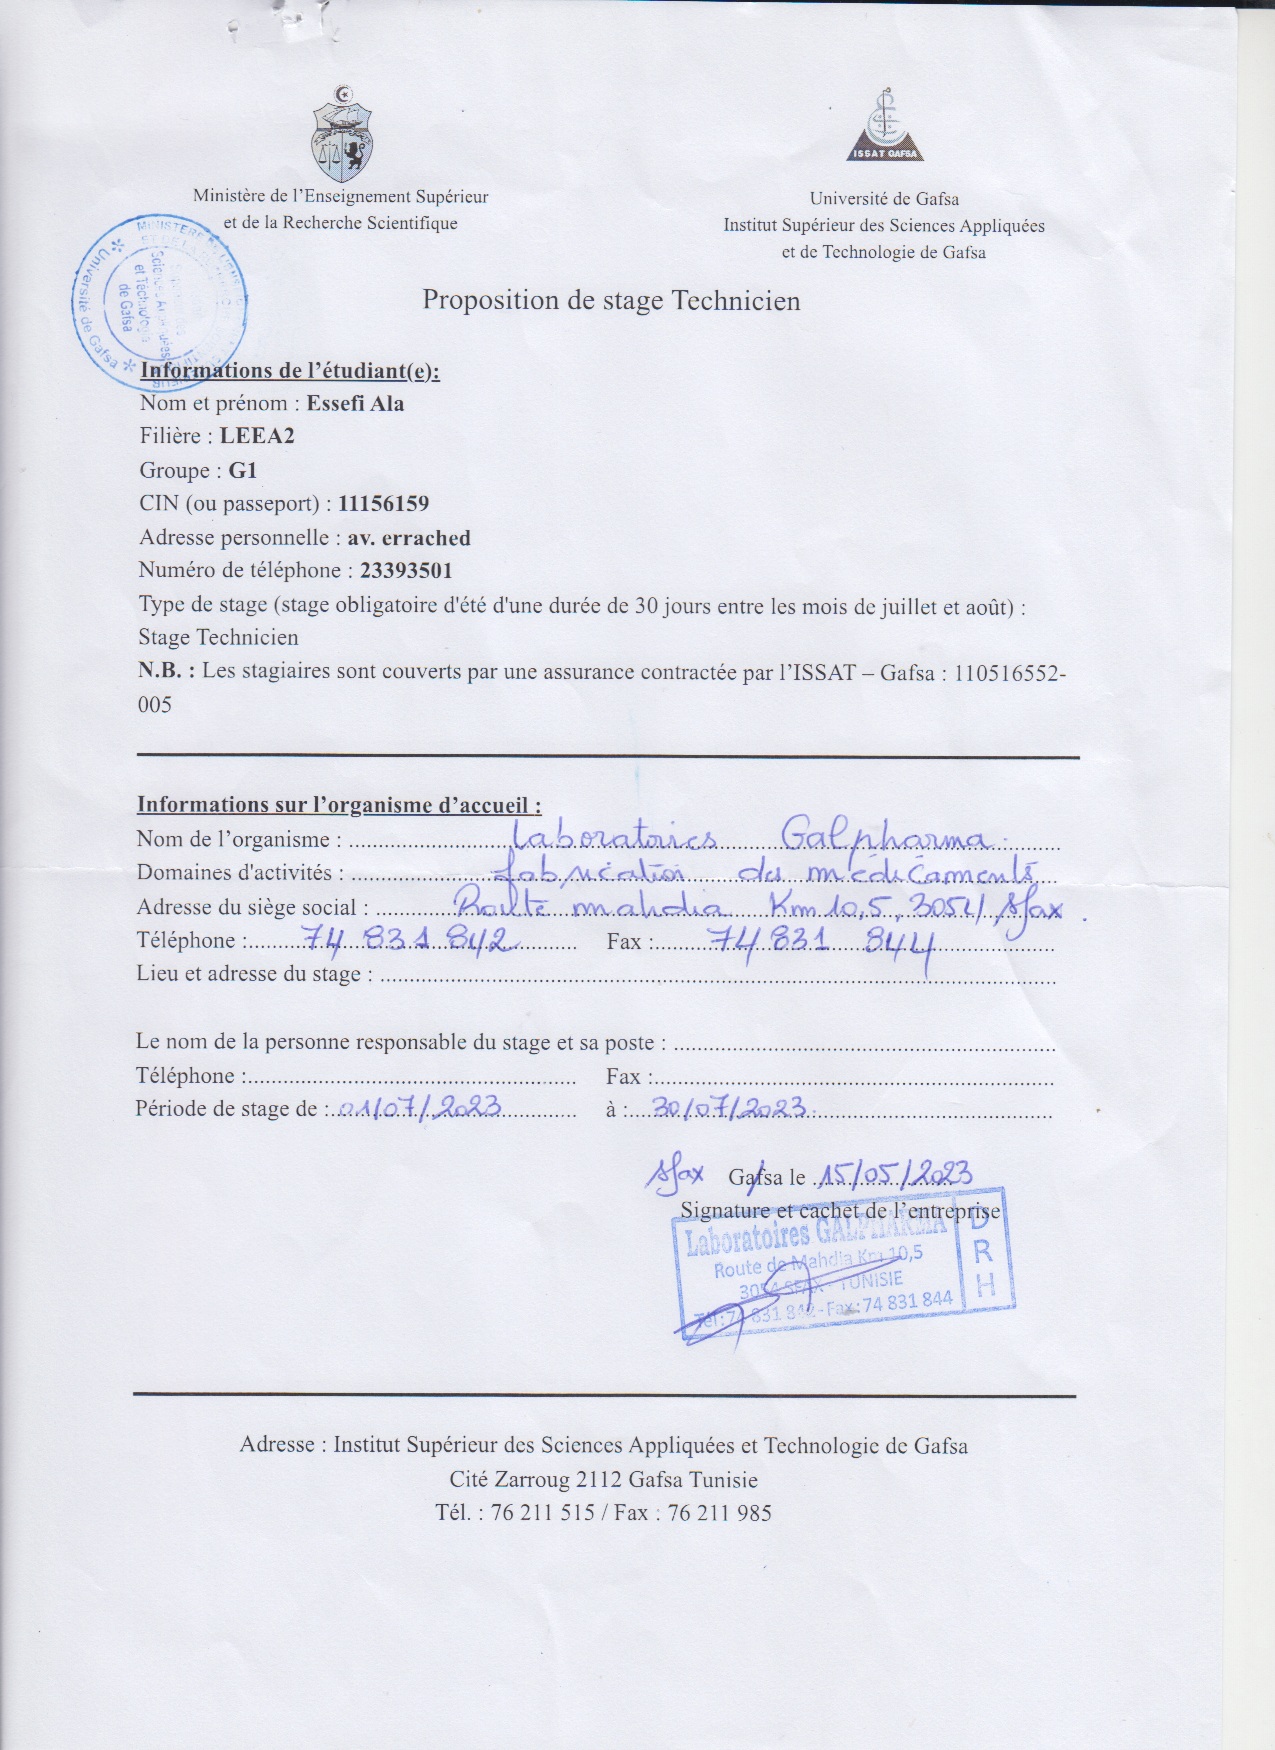 ISSAT GAFSA
Ministère de l'Enseignement Supérieur
et de la Recherche Scientifique
Université de Gafsa
Institut Supérieur des Sciences Appliquées
et de Technologie de Gafsa
Université de Gafsa
et Technologie
de Gafsa
Proposition de stage Technicien
Informations de l'étudiant(e):
Nom et prénom : Essefi Ala
Filière : LEEA2
Groupe : G1
CIN (ou passeport) : 11156159
Adresse personnelle : av. errached
Numéro de téléphone : 23393501
Type de stage (stage obligatoire d'été d'une durée de 30 jours entre les mois de juillet et août) :
Stage Technicien
N.B. : Les stagiaires sont couverts par une assurance contractée par l'ISSAT – Gafsa : 110516552-
005
Informations sur l'organisme d'accueil :
Nom de l'organisme : Laboratoires Galpharma
Domaines d'activités : fabrication des médicaments
Adresse du siège social : Route mahdia Km 10,5, 3054 Sfax.
Téléphone : 74 831 842 Fax : 74 831 844
Lieu et adresse du stage :
Le nom de la personne responsable du stage et sa poste :
Téléphone : Fax :
Période de stage de : 01/07/2023 à : 30/07/2023
Sfax Gafsa le 15/05/2023
Signature et cachet de l'entreprise
Laboratoires GALPHARMA
Route de Mahdia Km 10,5
3054 SFAX - TUNISIE
Tél : 74 831 842 - Fax : 74 831 844
DRH
Adresse : Institut Supérieur des Sciences Appliquées et Technologie de Gafsa
Cité Zarroug 2112 Gafsa Tunisie
Tél. : 76 211 515 / Fax : 76 211 985